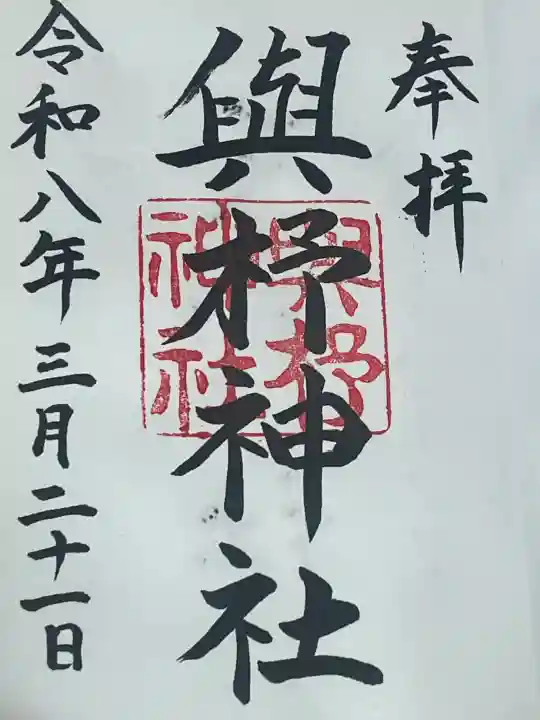 奉拝
與杼神社
與杼
神社
令和八年三月二十一日